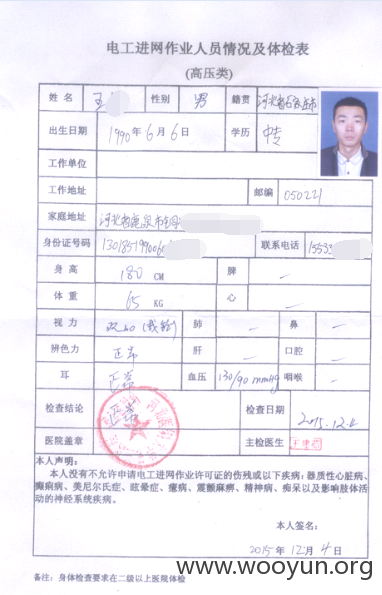 电工进网作业人员情况及体检表
(高压类)
姓 名 王 性别 男 籍贯 河北省石家庄市
出生日期 1990年6月6日 学历 中专
工作单位
工作地址 邮编 050221
家庭地址 河北省鹿泉市
身份证号码 130185199006 联系电话 15533
身 高 180 CM 脾 —
体 重 65 KG 心 —
视 力 肺 — 鼻 —
辨色力 正常 肝 — 口腔 —
耳 正常 血压 130/90 mmHg 咽喉 —
检查结论 正常 检查日期 2015.12.4
医院盖章 主检医生
本人声明:
本人没有不允许申请电工进网作业许可证的伤残或以下疾病:器质性心脏病、
癫痫病、美尼尔氏症、眩晕症、癔病、震颤麻痹、精神病、痴呆以及影响肢体活
动的神经系统疾病。
本人签名:
2015 年 12 月 4 日
备注:身体检查要求在二级以上医院体检
www.wooyun.org